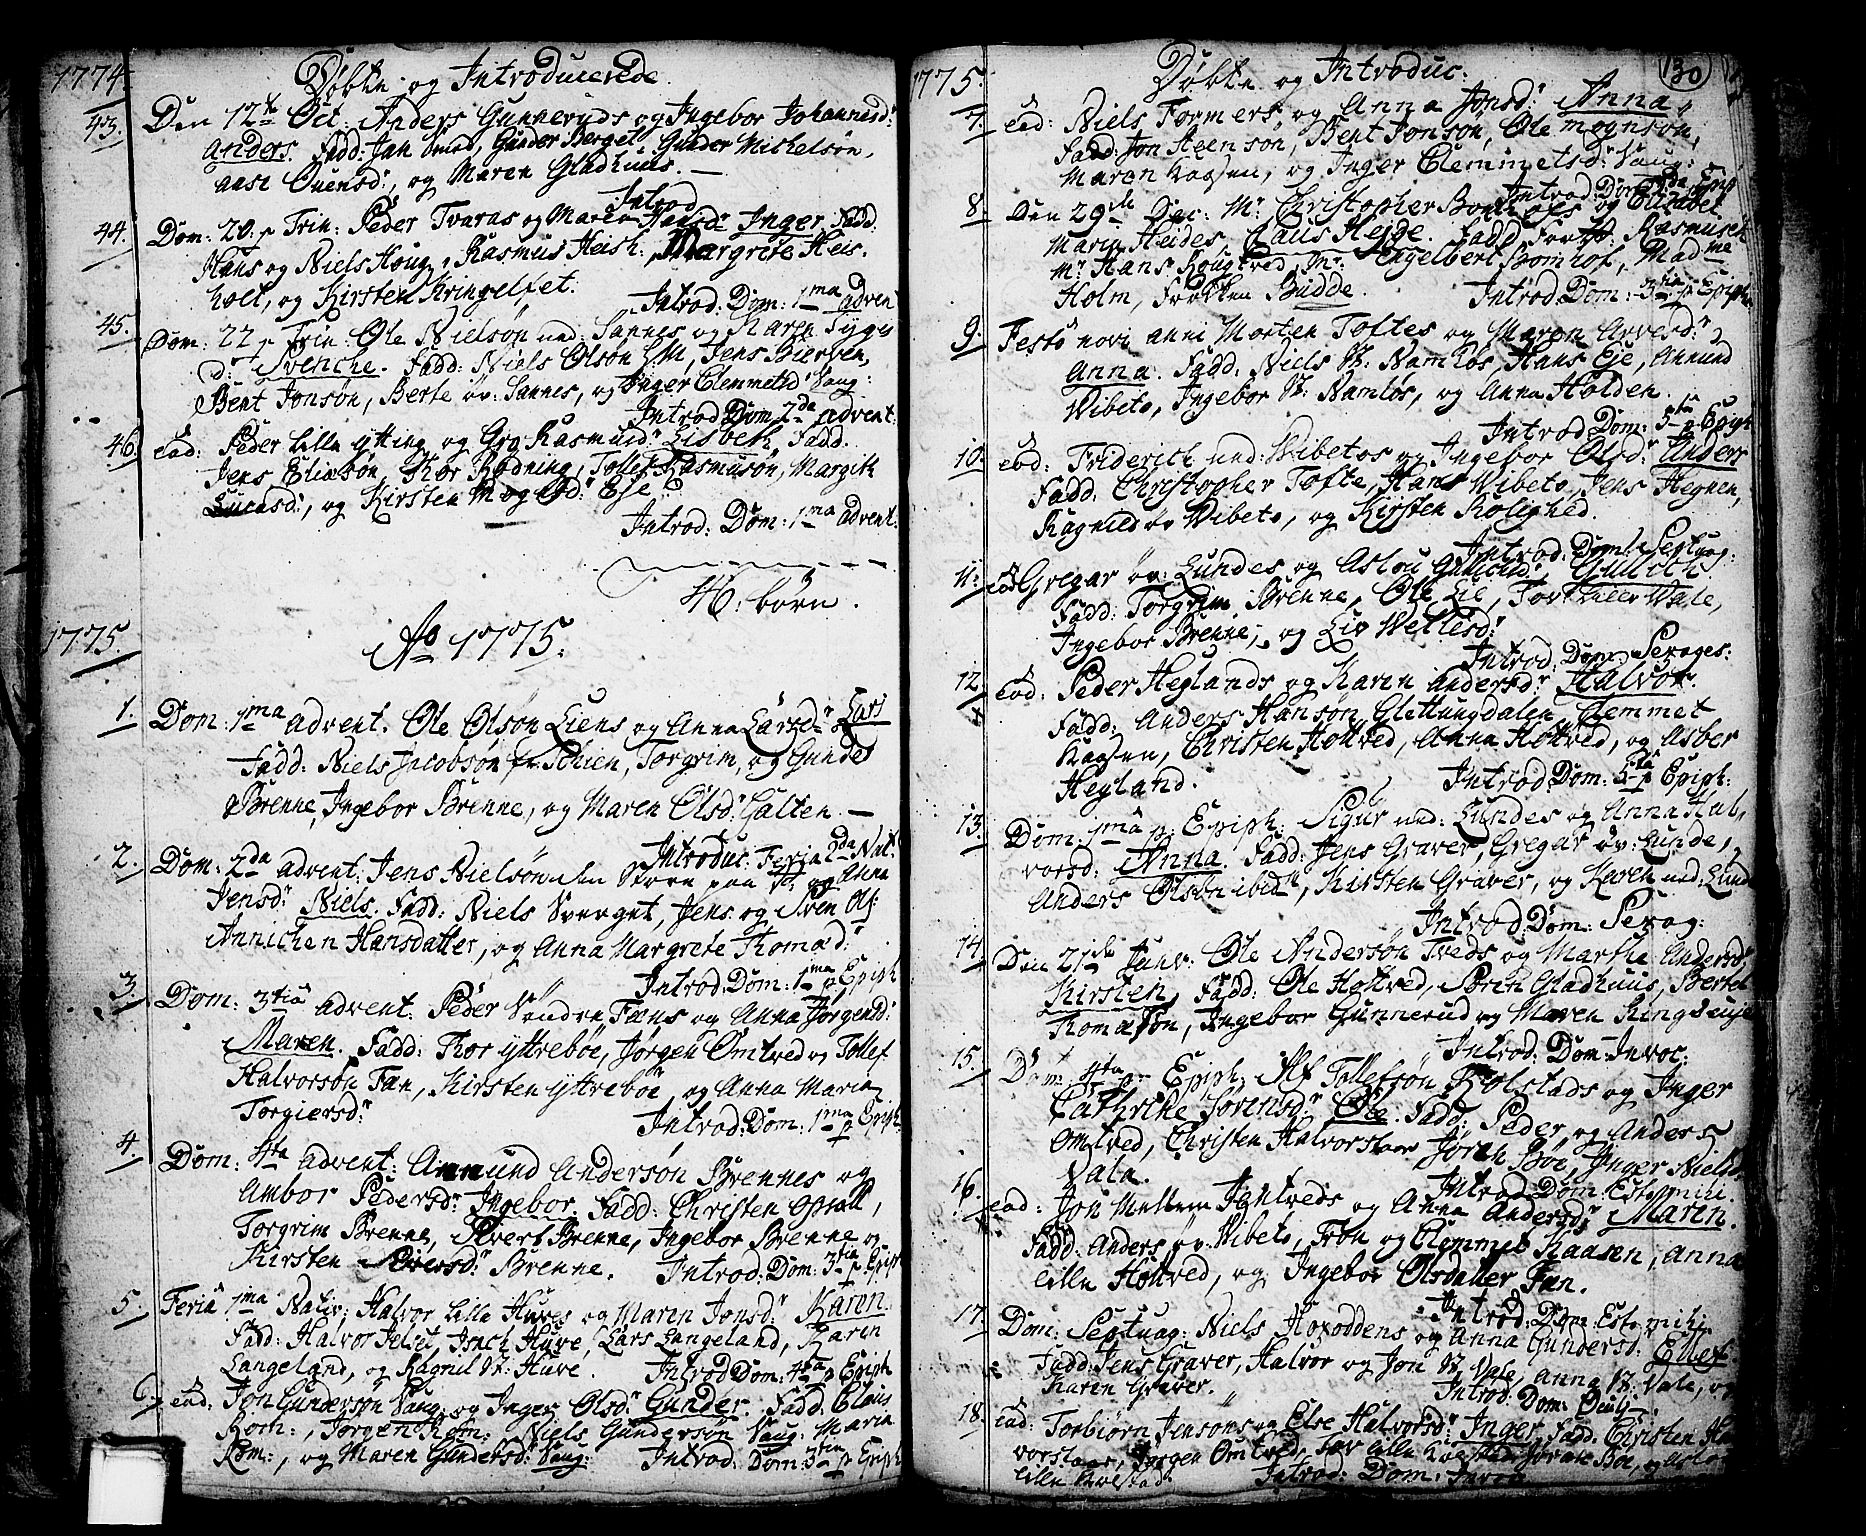 1774. Døbte og Introducerede
43. Den 12te Oct: Anders Gunneruds og Ingebor Johannesd:
Anders. Fadd: Jan Smed, Gunder Berget, Gunder Michelsøn,
Aase Ovensd:, og Maren Gladhuus. —
Introd
44. Dom: 20 p Trin: Peder Tvaras og Maren Hansd: Inger. Fadd.
Hans og Niels Houg, Rasmus Heish: Margrete Heis-
holt, og Kirsten Kringelfet.
Introd: Dom: 1ma advent
45. Dom: 22 p Trin: Ole Nielsøn ned: Sannes og Karen Tyges
d: Svenche. Fadd: Niels Olsøn, Jens Bierven,
Bent Jonsøn, Berte øv: Sannes, og Inger Clemmetsd: Vaug:
Introd Dom 2da advent
46. eod: Peder Lille ytting og Gro Rasmusd: Lisbeth. Fadd.
Jens Eliæsøn, Thor Rødning, Tollef Rasmusøn, Margith
Lucasd:, og Kirsten Mognsd: Eje
Introd: Dom: 1ma advent.
46: børn.
1775. Ao 1775.
1. Dom: 1ma advent. Ole Olsøn Liens og Anna Larsd: Lars
Fadd: Niels Jacobsøn fr Schien, Torgrim, og Gunder
Brenne, Ingebor Brenne, og Maren Olsd: Galten —
Introduc: Feria 2da Nat:
2. Dom: 2da advent: Jens Nielsøn den Store paa og Anna
Jensd: Niels. Fadd: Niels Sverget, Jens og Sven Ols:
Annichen Hansdatter, og Anna Margrete Thomasd:
Introd: Dom: 1ma p Epiph
3. Dom: 3tia advent: Peder Søndre Fæns og Anna Jørgensd:
Maren. Fadd: Thor yttrebøe, Jørgen Omtved og Tollef
Halvorsøn Fæn, Kirsten yttrebøe og Anna Maria
Torgiersd:
Introd: Dom: 1ma p Epiph.
4. Dom: 4ta advent: Amund Andersøn Brennes og
Ambor Pedersd: Ingebor. Fadd: Christen Opsall,
Torgrim Brenne, Sivert Brenne, Ingebor Brenne og
Kirsten Siversd: Brenne. Introd: Dom: 3tia p Epiph
5. Feriâ 1ma Nativ: Halvor Lille Huves og Maren Jonsd: Karen.
Fadd: Halvor Jelset, Isach Huve, Lars Langeland, Karen
Langeland, og Ragnil St: Huve. Introd Dom: 4ta p Epiph
6. eod: Jon Gundersøn Vaug: og Inger Olsd: Gunder. Fadd. Claus
Roth:, Jørgen Rom: Niels Gundersøn Vaug: Maria
Rom:, og Maren Gundersd: Vaug: Introd: Dom: 3tia p Epiph
1775. Døbte og Introduc: 130
7. eod: Niels Formers, og Anna Jonsd: Anna
Fadd: Jon Steensøn, Bent Jonsøn, Ole Mognsøn,
Maren Kaasen, og Inger Clemmetsd: Vaug:
Introd: Dom: 2da p Epiph
8. Den 29de Dec: Mr Christopher Bomhofs og Elisabet
Maria Heides, Claus Hejde. Fadd Rasmusen
Mr Hans Kougtved, Mr Engelbert Bomhof, Madme
Holm, Frøken Budde. Introd: Dom: 3tia p Epiph
9. Festo novi anni Morten Toftes og Maren Arversd:
Anna. Fadd: Niels St: Namløs, Hans Eje, Amund
Wibeto, Ingebor St: Namløs, og Anna Holden.
Introd Dom: 5ta p Epiph
10. eod: Friderich ned: Wibetos og Ingebor Olsd: Anders
Fadd: Christopher Tofte, Hans Wibeto, Jens Hegnen,
Ragnild øv Wibeto, og Kirsten Rolighed.
Introd: Dom: Septuag:
11. eod Gregar øv: Lundes og Aslou Gullichsd: Gullich
Fadd: Torgrim Brenne, Ole Lie, Tor Vale,
Ingebor Brenne, og Liv Vetlesd:
Introd: Dom: Sexages:
12. eod: Peder Heglands og Karen Andersd: Halvor.
Fadd: Anders Hansøn Glettungdalen Clemmet
Kaasen, Christen Holtved, Anna Holtved, og Asber
Hegland. Introd: Dom: 5ta p Epiph:
13. Dom: 1ma p: Epiph: Sigur ned: Lundes og Anna Hal-
vorsd: Anna. Fadd: Jens Graver, Gregar øv: Lunde,
Anders Olsøn ibid:, Kirsten Graver, og Karen ned: Lunde
Introd: Dom: Sexag:
14. Den 21de Janv: Ole Andersøn Tveds og Marthe Andersd:
Kirsten. Fadd: Ole Holtved, Søren Gladhuus, Bertel
Thomasøn, Ingebor Gunnerud og Maren Ringsevje
Introd: Dom Invoc:
15. Dom: 4ta p Epiph. Alf Tollefsøn Kolstads og Inger
Cathrine Sørensd: Ole. Fadd: Peder og Anders
Omtved, Christen Halvorstaar Joran Boe, Inger Nielsd
Vala. Introd: Dom: Estomihi.
16. eod: Jon Mellem Jontveds og Anna Andersd: Maren.
Fadd: Anders øv: Wibeto, Tron og Clemmet Kaasen, Anna
Lille Holtved, og Ingebor Olsdatter Fæn.
Introd: Dom: Estomihi
17. Dom: Septuag: Niels Hoxoddens og Anna Gundersd: Ellef
Fadd: Jens Graver, Halvor og Jon St: Vale, Anna St: Vale, og
Karen Graver. Introd: Dom: Oculj
18. eod: Torbiørn Jensøns og Else Halvorsd: Inger. Fadd: Christen Hal-
vorstaar, Jørgen Omtved, Tov Lille Kolstad Joran Boe, og Aslou
Lille Kolstad. Introd: Dom: